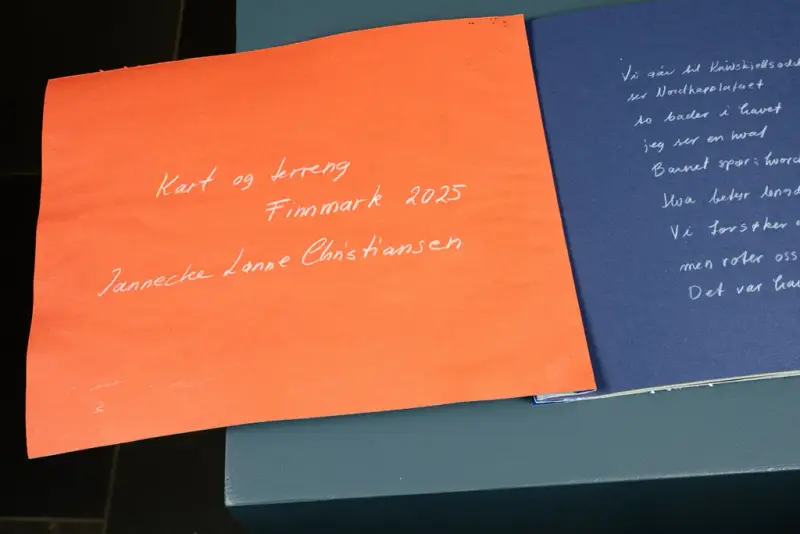 Kart og terreng
Finnmark 2025
Jannecke Lønne Christiansen
Vi går til
ser Nordkapplatået
to bader i havet
jeg ser en hval
Barnet spør: hvord
Hva betyr
Vi forsøker
men roter oss
Det var